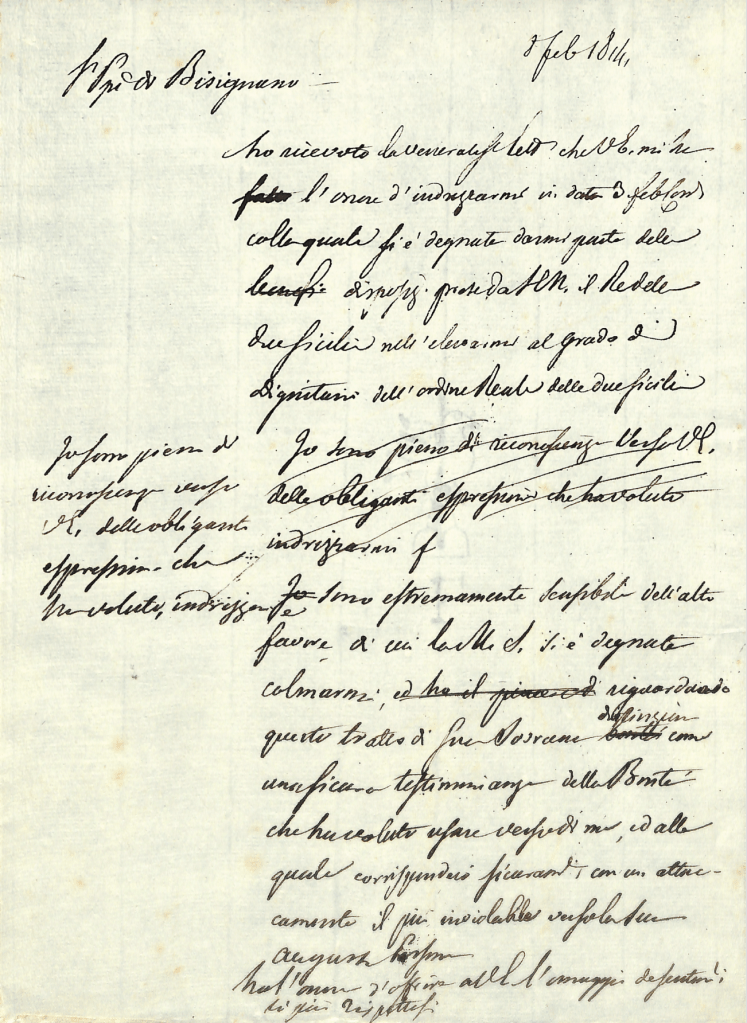 8 feb 1814,
Sr Ppe di Bisignano
ho ricevuto la veneratiss lett che V.E. mi ha
fatto l'onore d'indrizzarmi in data 3 feb
colla quale si è degnata darmi parte dele
benefi disposiz. prese da S.M. il Re dele
due Sicilie nell'elevarmi al grado di
dignitario dell'ordine Reale delle due Sicilie
Io sono pieno di riconoscenza verso V.E.
delle obliganti espressioni che ha voluto
indrizzarmi
Io sono pieno di
riconoscenza verso
V.E. delle obliganti
espressioni che
ha voluto, indrizzar
Io e sono estremamente sensibile dell'alto
favore di cui la M. S. si è degnata
colmarmi, ed ho il piacere di riguardando
questo tratto di Sua Sovrana distinzion bontà come
una sicura testimonianza della Bontà
che ha voluto usare verso di me, ed alla
quale corrisponderò sicuram con un attac-
camento il più inviolabile verso la Sua
augusta Persona
ho l'onore d'offrire a V.E. l'omaggio de sentim
di più rispettosi